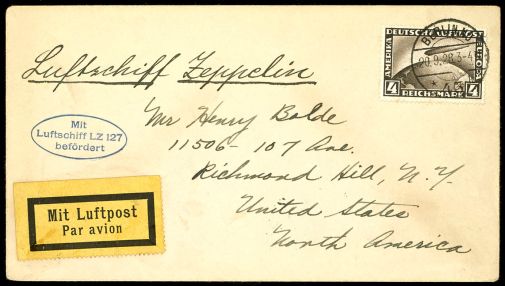 DEUTSCHE LUFTPOST
AMERIKA
EUROPA
4
4
REICHSMARK
BERLIN
Luftschiff Zeppelin
Mit
Luftschiff LZ 127
befördert
Mr Henry Bolde
11506 - 107 Ave.
Richmond Hill, N.Y.
United States
North America
Mit Luftpost
Par avion